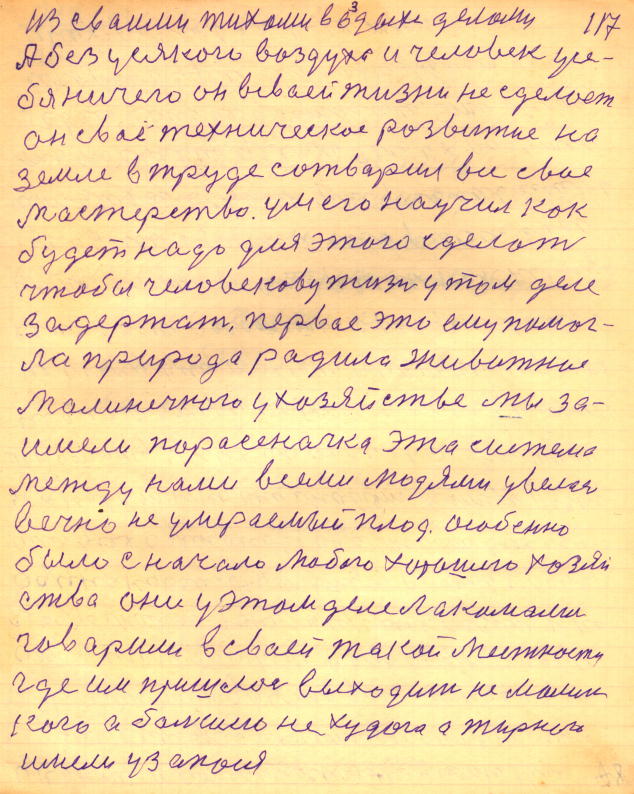 из своими тихоми вздыха деломи 117
А без усякого воздуха и человек усе-
бя ничего он всваей жизни не сделоет
он своё техническое розвитие на
земле в труде сотварил все свое
мастерство. ум его научил кок
будет надо для этого сделот
чтобы человекову жизн у том деле
задержат. первае это ему помог-
ла природа радила животное
малинечкого у хозяйстве мы за-
имели порасеначка эта система
между нами всеми людями увела
вечно не умераемый плод. особенно
было сначало любого хорошего хозяй
ства они у этом деле лакомами
говарили в сваей такой местности
где им пришлос выходит не малин
кого а болшого не худога а жирного
имели узапося